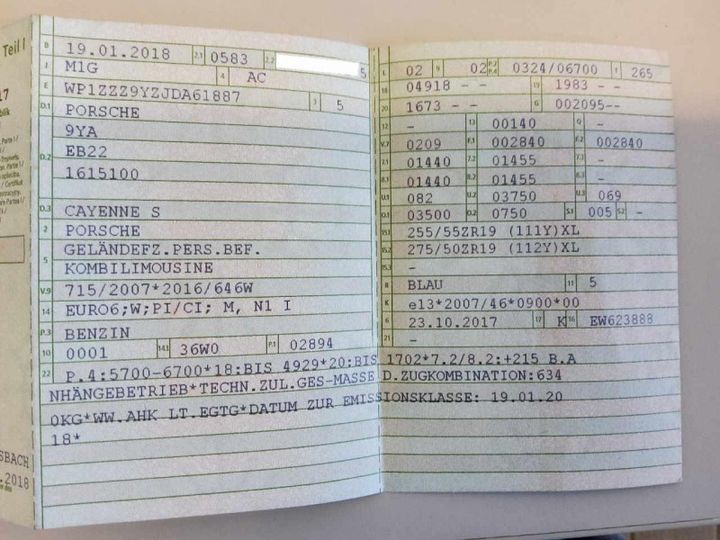 Teil I
B 19.01.2018 2.1 0583 2.2 5
J M1G 4 AC
E WP1ZZZ9YZJDA61887 3 5
D.1 PORSCHE
9YA
D.2 EB22
1615100
D.3 CAYENNE S
2 PORSCHE
5 GELÄNDEFZ.PERS.BEF.
KOMBILIMOUSINE
V.9 715/2007*2016/646W
14 EURO6;W;PI/CI; M, N1 I
P.3 BENZIN
10 0001 14.1 36W0 P.1 02894
L 02 9 02 P.2 P.4 0324/06700 T 265
18 04918 - - 19 1983 - -
20 1673 - - G 002095--
12 - 13 00140 Q -
V.7 0209 F.1 002840 F.2 002840
7.1 01440 7.2 01455 7.3 -
8.1 01440 8.2 01455 8.3 -
U.1 082 U.2 03750 U.3 069
O.1 03500 O.2 0750 S.1 005 S.2 -
15.1 255/55ZR19 (111Y)XL
15.2 275/50ZR19 (112Y)XL
15.3 -
R BLAU 11 5
K e13*2007/46*0900*00
6 23.10.2017 17 K 16 EW623888
21 -
22 P.4:5700-6700*18:BIS 4929*20:BIS 1702*7.2/8.2:+215 B.A
NHÄNGEBETRIEB*TECHN.ZUL.GES-MASSE D.ZUGKOMBINATION:634
0KG*WW.AHK LT.EGTG*DATUM ZUR EMISSIONSKLASSE: 19.01.20
18*
SBACH
.2018